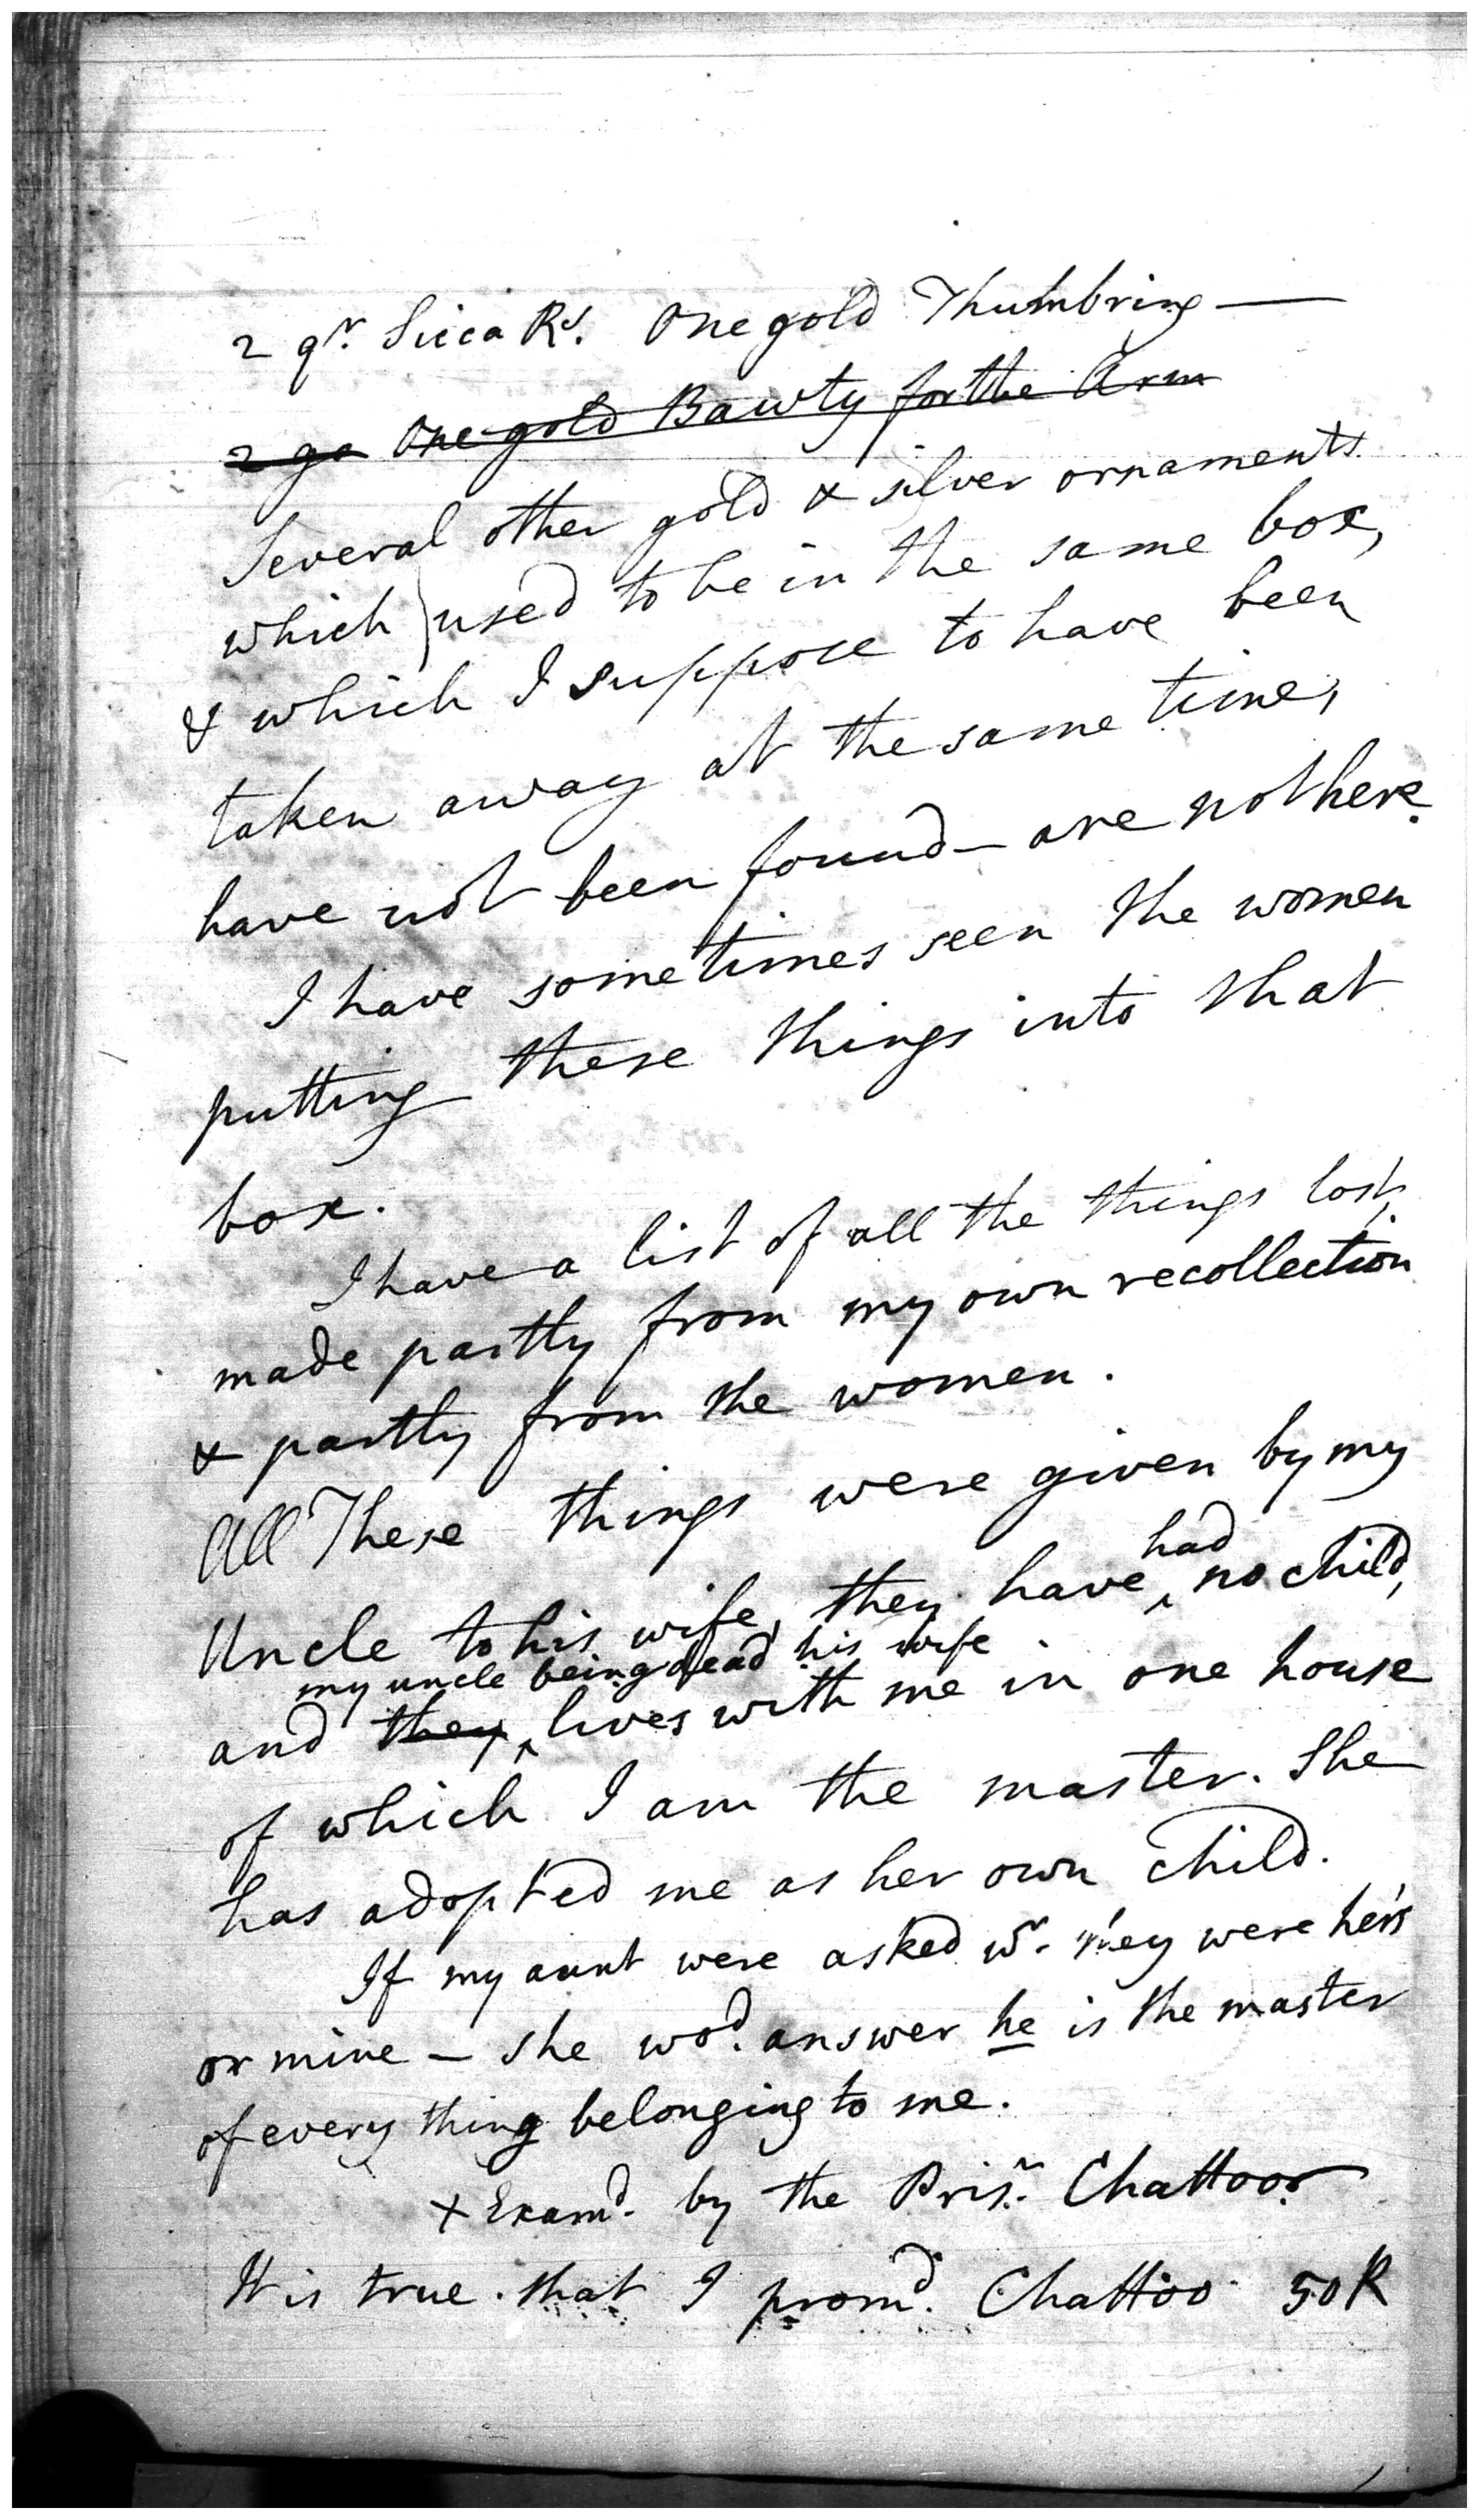 2 qr. Sicca Rs. One gold Thumbring —
2 go One gold Bawty for the Arm
Several other gold & silver ornaments
which used to be in the same box,
& which I suppose to have been
taken away at the same time,
have not been found — are not here.
I have sometimes seen the women
putting these things into that
box.
I have a list of all the things lost,
made partly from my own recollection
& partly from the women.
All These things were given by my
had
Uncle to his wife, they have ^ no child,
my uncle being dead his wife
and they ^ lives with me in one house
of which I am the master. She
has adopted me as her own child.
If my aunt were asked wr. they were her's
or mine — she wod. answer he is the master
of every thing belonging to me.
+ Examd. by the Prisr. Chattoo
It is true that I promd. Chattoo 50 R